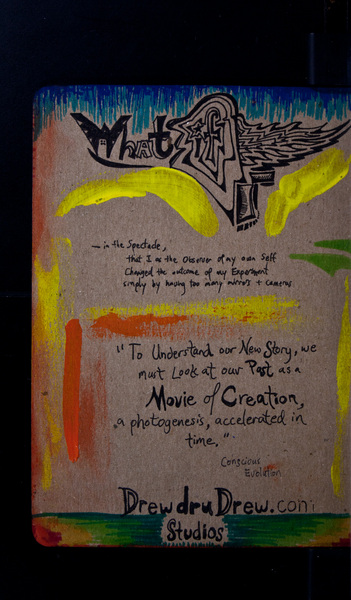 What if
IT
— in the Spectacle,
that I as the Observer of my own Self
Changed the outcome of my Experiment
simply by having too many mirrors + cameras
"To Understand our New Story, we
must Look at our Past as a
Movie of Creation,
a photogenesis, accelerated in
time."
Conscious
Evolution
DrewdruDrew.com
Studios